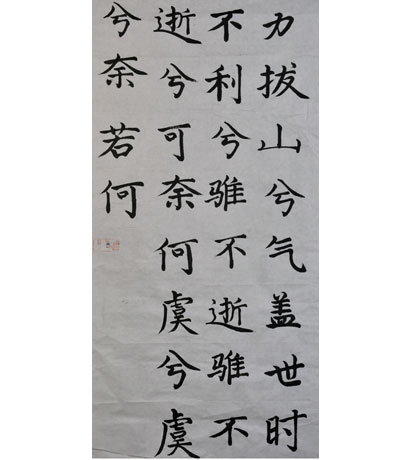 力拔山兮气盖世时
不利兮骓不逝骓不
逝兮可奈何虞兮虞
兮奈若何